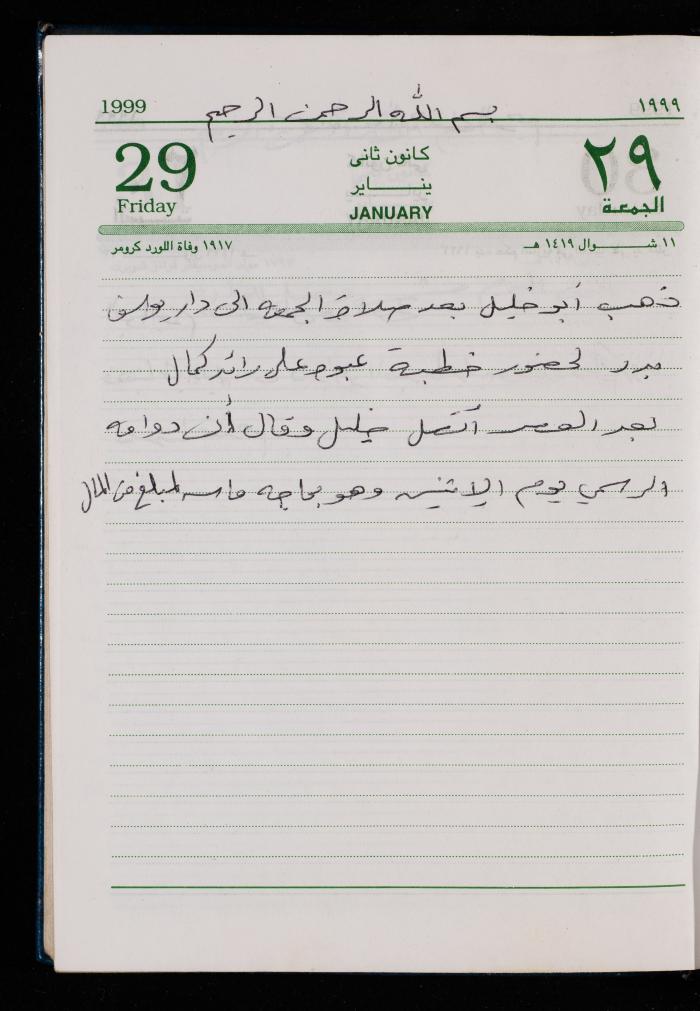 1999 بسم الله الرحمن الرحيم ١٩٩٩
29 كانون ثانى ٢٩
ينـــــاير
Friday JANUARY الجمعة
١١ شـــــوال ١٤١٩ هـ ١٩١٧ وفاة اللورد كرومر
ذهب أبو خليل بعد صلاة الجمعه الى دار يوسف
بدر لحضور خطبة عبود على رائد كمال
بعد العصر أتصل خليل وقال أن دوامه
الرسمي يوم الإثنين وهو بحاجه ماسه لمبلغ من المال